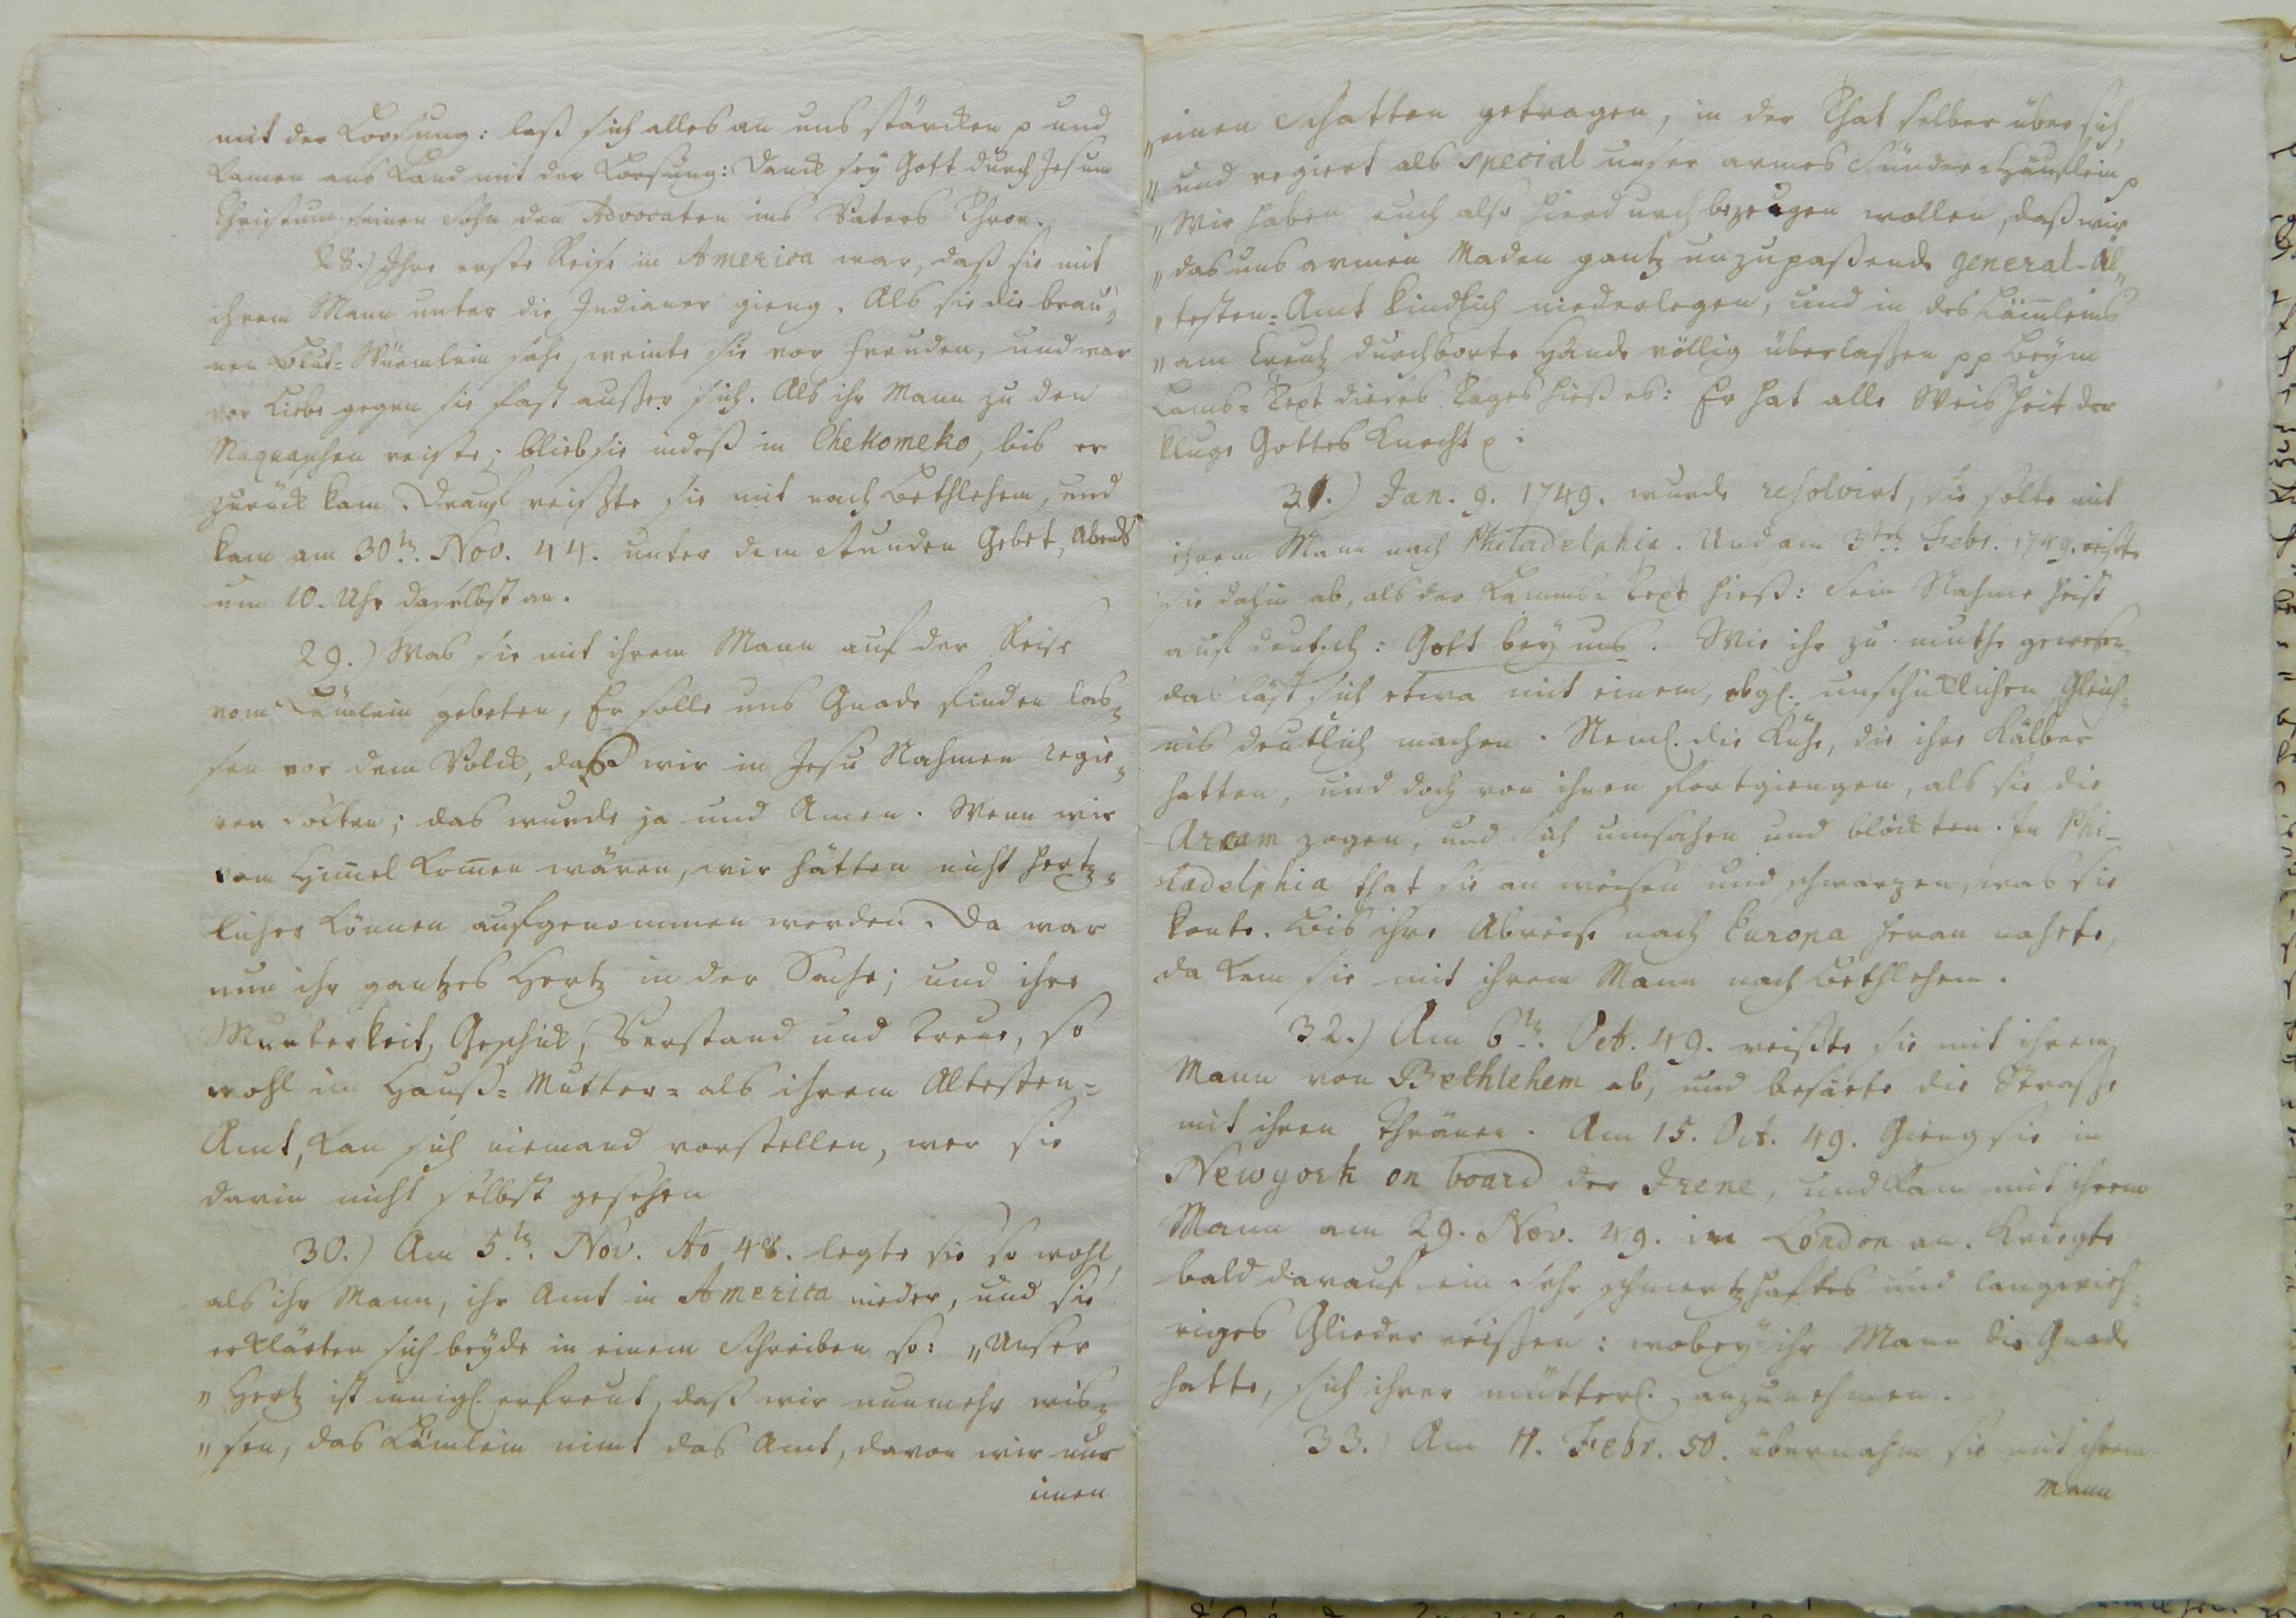 mit der Loosung: laß sich alles an uns stärcken p und
kamen ans Land mit der Loosung: Danck sey Gott durch Jesum
Christum seinen Sohn den Advocaten ins Vaters Thron.
28.) Ihre erste Reise in America war, daß sie mit
ihrem Mann unter die Indianer gieng. Als sie die brau„
nen Blut-Würmlein sahe, weinte sie vor Freuden, und war
vor Liebe gegen sie fast außer sich. Als ihr Mann zu den
Maquaschen reiste; blieb sie indeß in Chekomeko, bis er
zurück kam. Drauf reißte sie mit nach Bethlehem, und
kam am 30tn. Nov. 44. unter dem Stunden Gebet, Abends
um 10. Uhr daselbst an.
29.) Was sie mit ihrem Mann auf der Reise
vom Lämlein gebeten, Er solle uns Gnade finden las„
sen vor dem Volck, daß wir in Jesu Nahmen regie„
ren solten; das wurde ja und Amen. Wenn wir
vom Him̅el kom̅en wären, wir hätten nicht hertz„
licher können aufgenommen werden. Da war
nun ihr gantzes Hertz in der Sache; und ihre
Munterkeit, Geschick, Verstand und Treue, so
wohl im Hauß-Mutter- als ihrem Altesten-
Amt, kan sich niemand vorstellen, wer sie
darin nicht selbst gesehen
30.) Am 5tn. Nov. Ao 48. legte sie so wohl
als ihr Mann, ihr Amt in America nieder, und sie
erklärten sich beyde in einem Schreiben so: „Unser
„Hertz ist innigl. erfreut, daß wir nunmehr wis„
„sen, das Lämlein nimt das Amt, davon wir nur
einen
„einen Schatten getragen, in der That selber über sich,
„und regiert als special unser armes Sünder-Häuflein p
„Wir haben euch also hierdurch bezeugen wollen, daß wir
„das uns armen Maden gantz unzupaßende General-Al„
„testen-Amt kindlich niederlegen, und in des Läm̅leins
„am Creutz durchborte Hände völlig überlaßen pp Beym
Lams-Text dieses Tages hieß es: Er hat alle Weisheit der
kluge Gottes Knecht p:
31.) Jan. 9. 1749. wurde resolvirt, sie solte mit
ihrem Mann nach Philadelphia. Und am 3ten Febr. 1749. reißte
sie dahin ab, als der Lamms-Text hieß: Sein Nahme heist
auf deutsch: Gott bey uns. Wie ihr zu muthe gewesen
das läst sich etwa mit einem, obgl. unschicklichen Gleich„
nis deutlich machen. Neml. die Kühe, die ihre Kälber
hatten, und doch von ihnen fortgiengen, als sie die
Arcam zogen, und sich umsahen und blöckten. In Phi-
ladelphia that sie an weisen und schwarzen, was sie
konte. Bis ihre Abreise nach Europa heran nahete,
da kam sie mit ihrem Mann nach Bethlehem.
32.) Am 6tn. Oct. 49. reißte sie mit ihrem
Mann von Bethlehem ab, und besäete die Straße
mit ihren Thränen. Am 15. Oct. 49. gieng sie in
Newyork on board der Irene, und kam mit ihrem
Mann am 29. Nov. 49. in London an. Kriegte
bald darauf ein sehr schmertzhaftes und langwieh„
riges Glieder reißen: wobey ihr Mann die Gnade
hatte, sich ihrer mütterl. anzunehmen.
33.) Am Febr. 50. übernahm sie mit ihrem
Mann